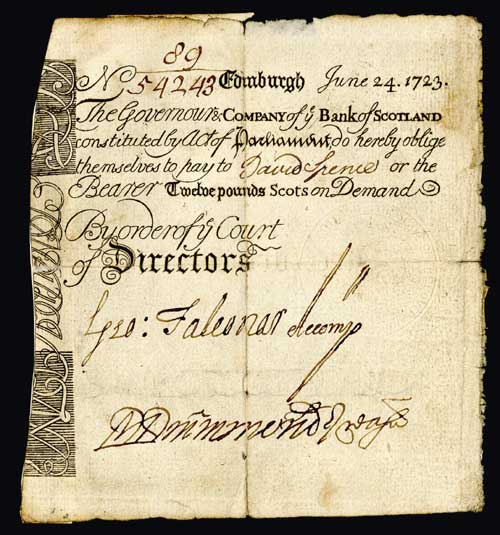 89
No 54243 Edinburgh June 24. 1723.
The Governour & COMPANY of ẙ BANK of SCOTLAND
constituted by Act of Parliament, do hereby oblige
themselves to pay to David Spence or the
Bearer Twelve pounds Scots on Demand
By order of ẙ Court
of Directors
Geo: Falconar Accomp
Drummond